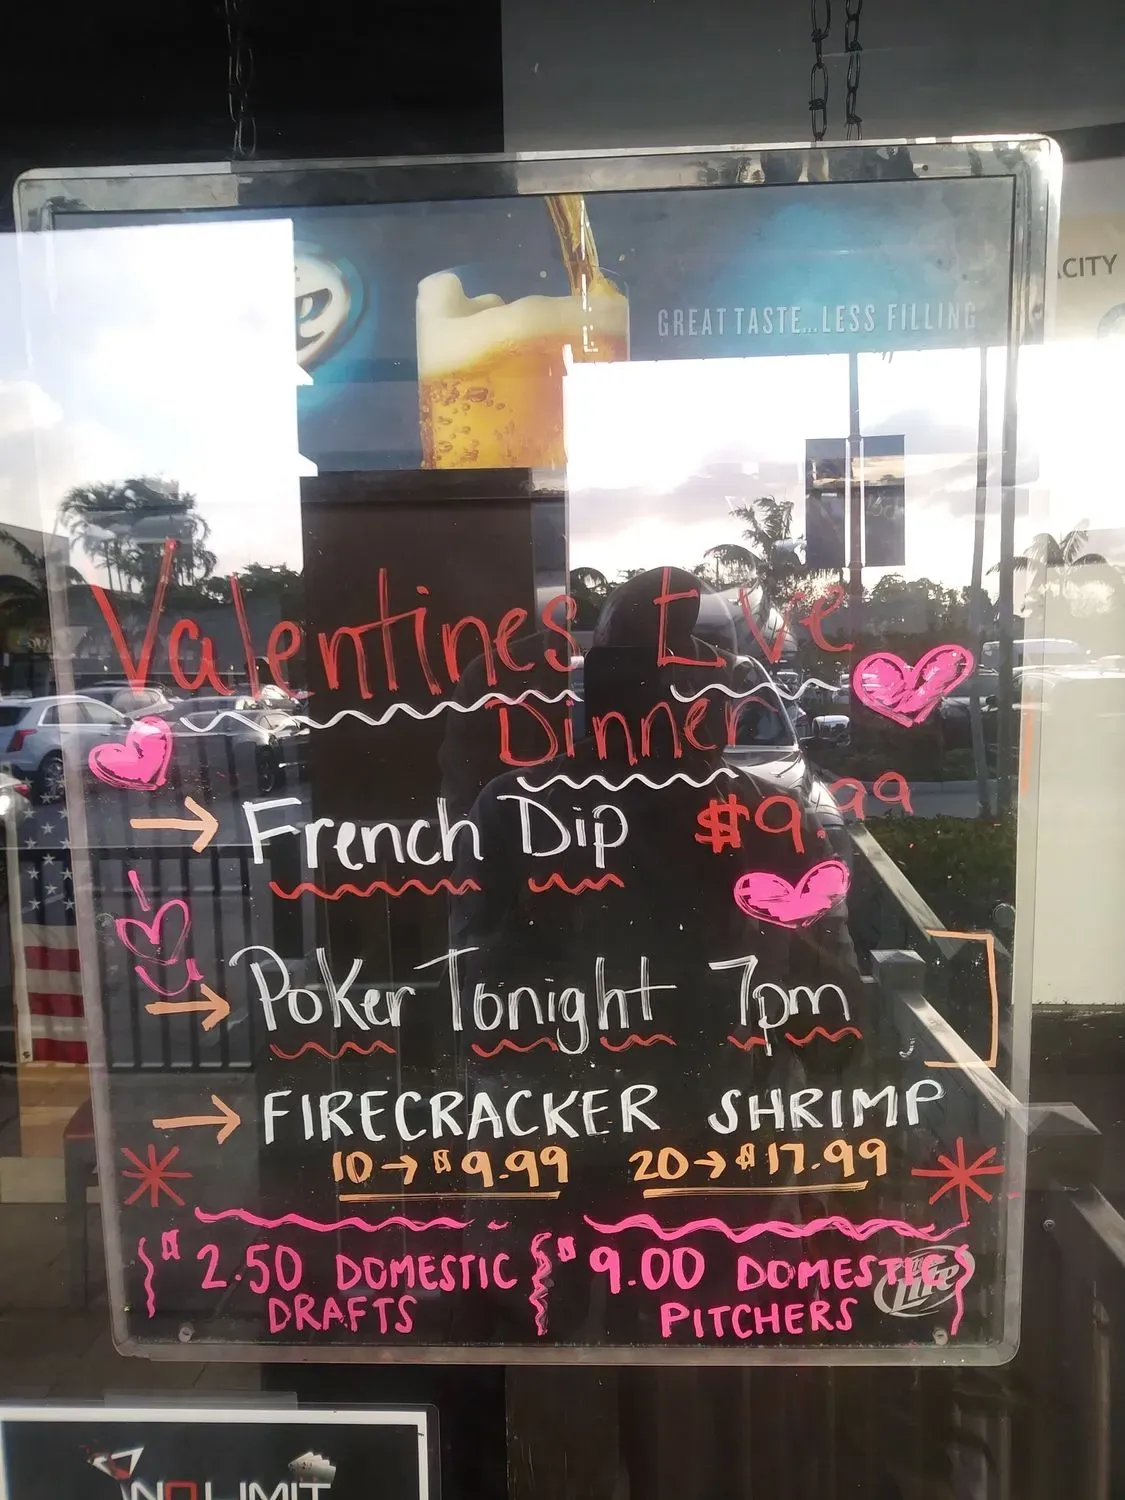 ACITY
GREAT TASTE...LESS FILLING
Valentines Eve
Dinner
French Dip $9.99
Poker Tonight 7pm
FIRECRACKER SHRIMP
10→$9.99 20→$17.99
$2.50 DOMESTIC $9.00 DOMESTIC
DRAFTS PITCHERS
Lite
NO LIMIT